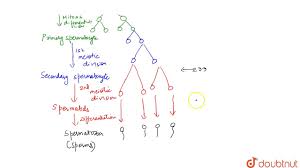 Mitosis &
differentiation
Primary spermatocyte
1st
meiotic
division
Secondary spermatocyte
2nd
meiotic
division
Spermatids
Differentiation
Spermatozoa
(sperms)
doubtnut